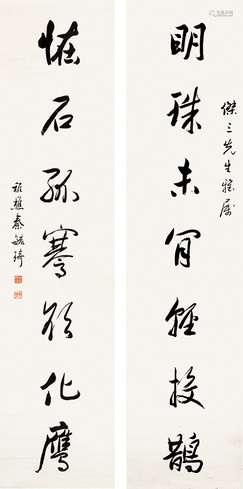 傑三先生雅属
明珠未肎輕投鵲
恠石孤騫欲化鷹
秦毓琦